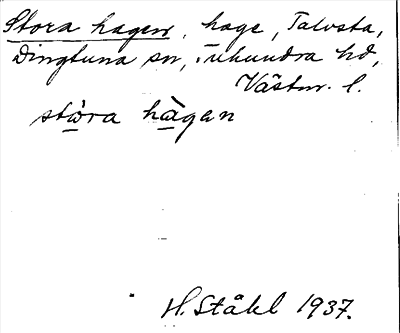 Stora hagen, hage, Talvsta,
Dingtuna sn, Tuhundra hd,
Västm. l.
stòra hàgen
H. Ståhl 1937.